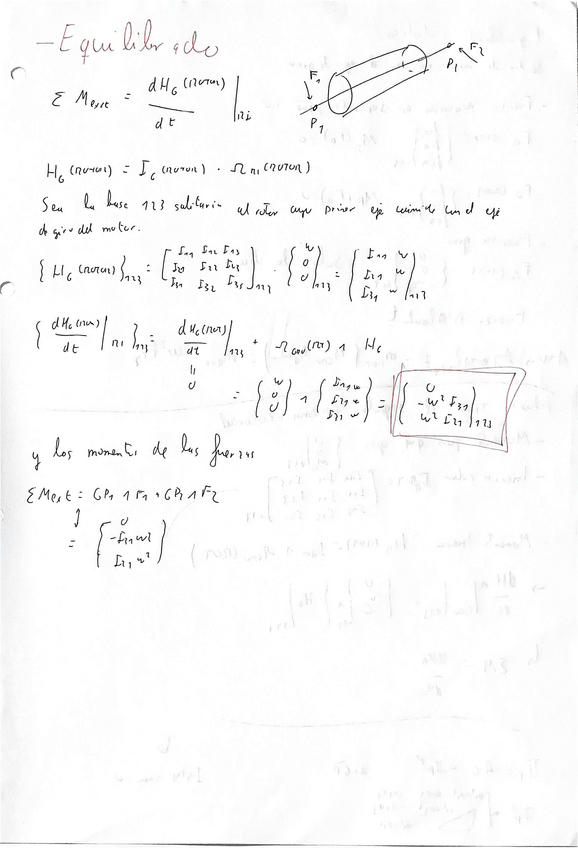 - Equilibrado
F1
F2
P1
P1
Σ Mext = dHG (rotor) / dt | Ri
HG (rotor) = IG (rotor) · Ω Ri (rotor)
Sea la base 123 solidaria al rotor cuyo primer eje coincide con el eje
de giro del motor.
{ HG (rotor) }123 = [ I11 I12 I13 ; I21 I22 I23 ; I31 I32 I33 ]123 · { w ; 0 ; 0 }123 = { I11 w ; I21 w ; I31 w }123
{ dHG (rot) / dt | Ri }123 = dHG (rot) / dt | 123 + Ω ∧ HG
= 0
= { w ; 0 ; 0 } ∧ { I11 w ; I21 w ; I31 w } = { 0 ; -w² I31 ; w² I21 }123
y los momentos de las fuerzas
Σ Mext = GP1 ∧ F1 + GP1 ∧ F2
= { 0 ; -I31 w² ; I21 w² }